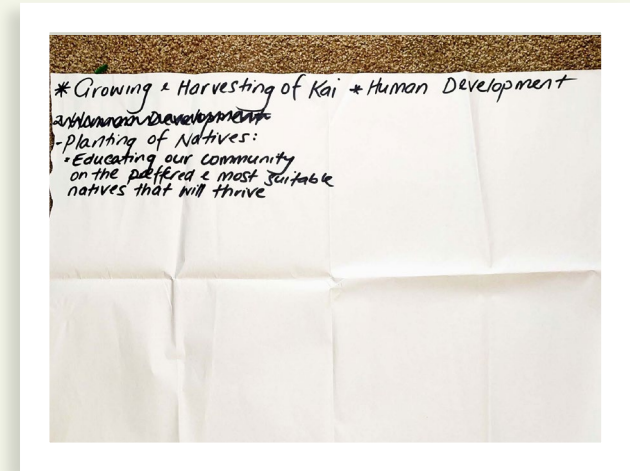 * Growing & Harvesting of Kai * Human Development
- Planting of Natives:
• Educating our community
on the preffered & most suitable
natives that will thrive